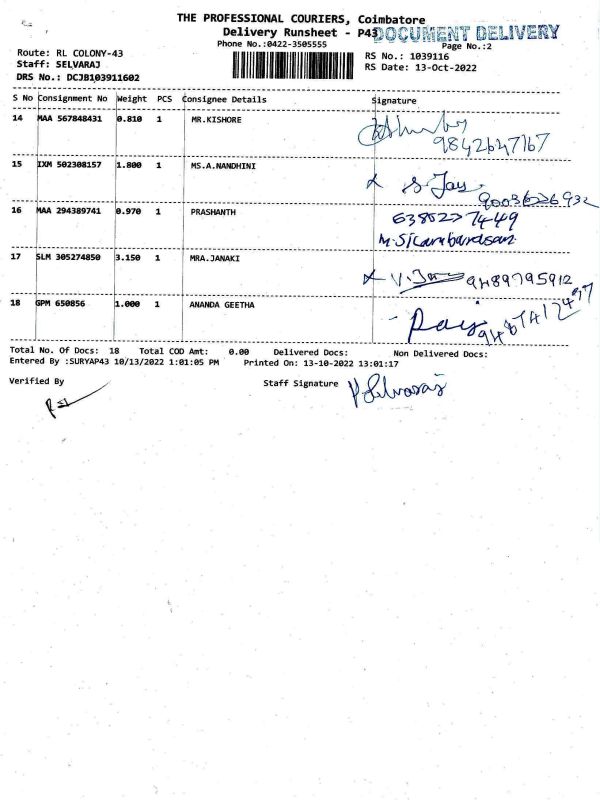 THE PROFESSIONAL COURIERS, Coimbatore
Delivery Runsheet - P43
DOCUMENT DELIVERY
Phone No.:0422-3505555
Page No.:2
Route: RL COLONY-43
RS No.: 1039116
Staff: SELVARAJ
RS Date: 13-Oct-2022
DRS No.: DCJB103911602
S No Consignment No Weight PCS Consignee Details Signature
14 MAA 567848431 0.810 1 MR.KISHORE
9842647167
15 IXM 502308157 1.800 1 MS.A.NANDHINI
S. Jay
9003626932
16 MAA 294389741 0.970 1 PRASHANTH
6380227449
17 SLM 305274850 3.150 1 MRA.JANAKI
9489795912
18 GPM 650856 1.000 1 ANANDA GEETHA
Raj
Total No. Of Docs: 18 Total COD Amt: 0.00 Delivered Docs: Non Delivered Docs:
Entered By :SURYAP43 10/13/2022 1:01:05 PM Printed On: 13-10-2022 13:01:17
Verified By
Staff Signature